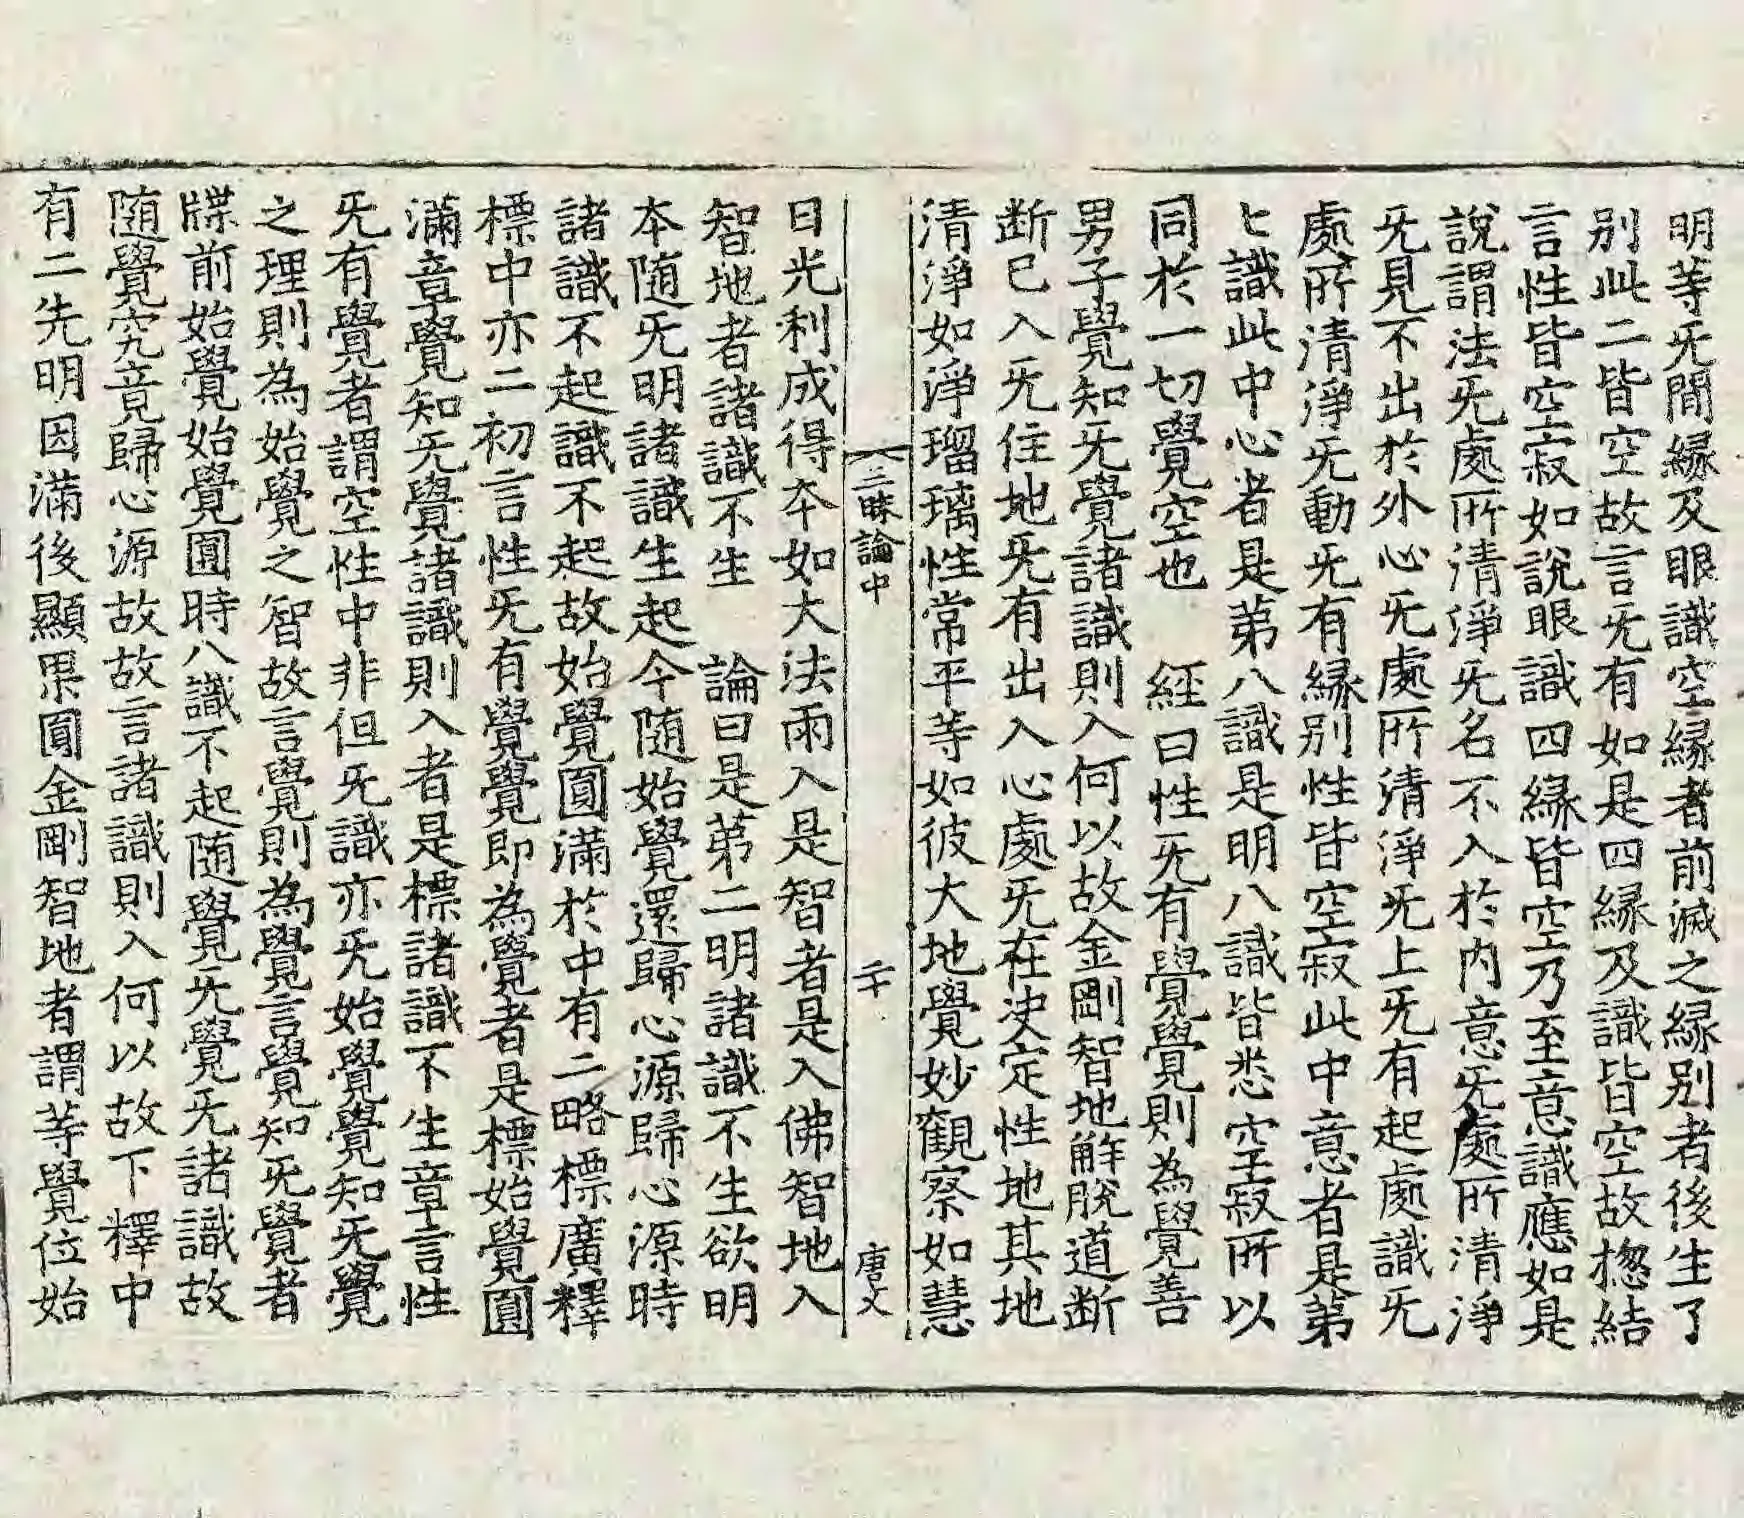 明等旡間縁及眼識空縁者前滅之縁别者後生了
别此二皆空故言旡有如是四縁及識皆空故揔結
言性皆空寂如說眼識四縁皆空乃至意識應如是
說謂法旡處所清淨旡名不入於内意旡處所清淨
旡見不出於外心旡處所清淨旡上旡有起處識旡
處所清淨旡動旡有縁别性皆空寂此中意者是第
七識此中心者是第八識是明八識皆悉空寂所以
同於一切覺空也　經曰性旡有覺覺則為覺善
男子覺知旡覺諸識則入何以故金剛智地解脫道断
断已入旡住地旡有出入心處旡在决定性地其地
清淨如淨瑠璃性常平等如彼大地覺妙觀察如慧
三昧論中　二十　唐文
日光利成得夲如大法雨入是智者是入佛智地入
智地者諸識不生　論曰是第二明諸識不生欲明
本随旡明諸識生起今随始覺還歸心源歸心源時
諸識不起識不起故始覺圓滿於中有二略標廣釋
標中亦二初言性旡有覺覺即為覺者是標始覺圓
滿章覺知旡覺諸識則入者是標諸識不生章言性
旡有覺者謂空性中非但旡識亦旡始覺覺知旡覺
之理則為始覺之智故言覺則為覺言覺知旡覺者
牒前始覺始覺圓時八識不起随覺旡覺旡諸識故
随覺究竟歸心源故故言諸識則入何以故下釋中
有二先明因滿後顯果圓金剛智地者謂等覺位始